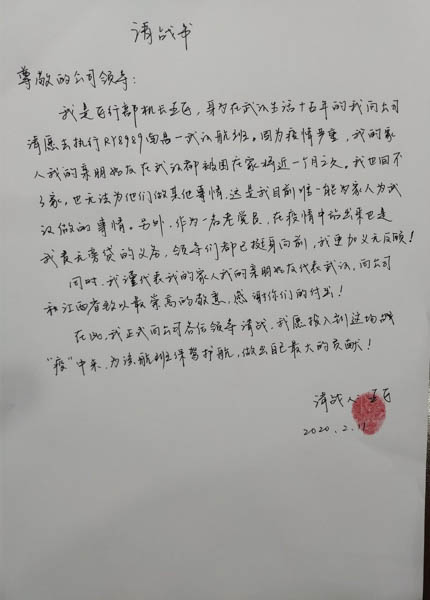 请战书
尊敬的公司领导:
我是飞行部机长王飞,身为在武汉生活十五年的我向公司
请愿去执行RY8989南昌一武汉航班。因为疫情严重,我的家
人我的亲朋好友在武汉都被困在家将近一个月之久。我也回不
了家,也无法为他们做其他事情,这是我目前唯一能为家人为武
汉做的事情。另外,作为一名老党员,在疫情中站出来也是
我责无旁贷的义务,领导们都已挺身向前,我更加义无反顾!
同时,我谨代表我的家人我的亲朋好友代表武汉,向公司
和江西省致以最崇高的敬意,感谢你们的付出!
在此,我正式向公司各位领导请战,我愿投入到这场战
“疫”中来,为该航班保驾护航,做出自己最大的贡献!
请战人:王飞
2020.2.11